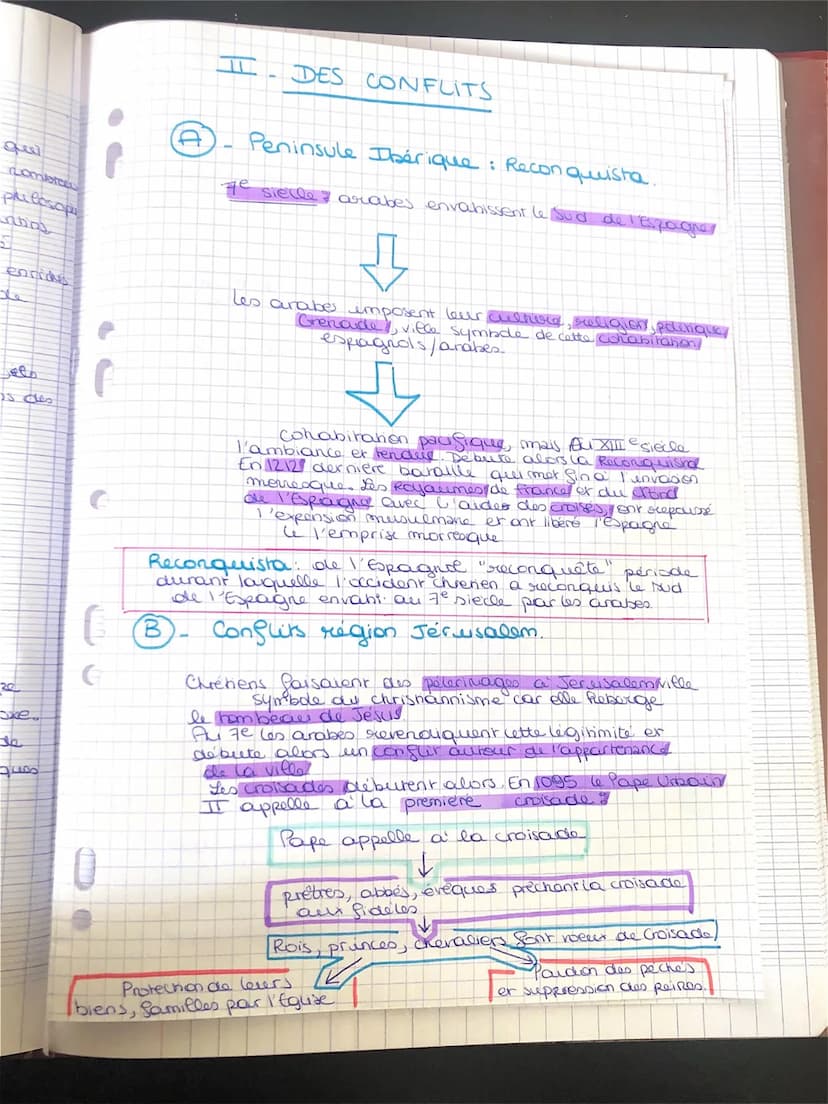 qui
nombreu
philosop
enrichis
de
des
de
ques
II - DES CONFLITS
A - Peninsule Ibérique : Reconquista.
7e siecle : arabes envahissent le sud de l'Espagne
Les arabes imposent leur culture, religion, politique
Grenade, ville symbole de cette cohabitation
espagnols/arabes.
Cohabitation pacifique, mais Au XIIIe siecle
l'ambiance et tendue. Debute alors la Reconquista
En 1212 dernière bataille qui met fin a l'invasion
morresque. Les Royaumes de france et du Nord
de l'Espagne avec l'aides des croisés, ont repoussé
l'expension musulmane et ont libéré l'Espagne
de l'emprise morresque
Reconquista : de l'Espagnol "reconquête" période
durant laquelle l'occident chretien a reconquis le sud
de l'Espagne envahit au 7e siecle par les arabes
B - Conflits région Jérusalem.
Chrétiens faisaient des pélerinages à Jerusalem ville
symbole du christiannisme car elle heberge
le tombeau de Jésus
Au 7e les arabes revendiquent cette légitimité et
débute alors un conflit autour de l'appartenance
de la ville
Les croisades débutent alors. En 1095 le Pape Urbain
II appelle à la première croisade :
Pape appelle à la croisade
prêtres, abbés, évêques prêchant la croisade
aux fidèles
Rois, princes, chevaliers font voeux de Croisade
Protection de leurs
biens, familles par l'église
Pardon des péchés
et suppression des peines.